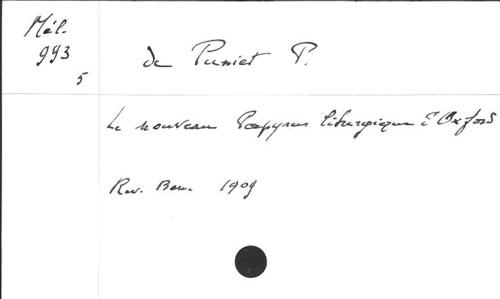 Mél.
993
5
de Puniet P.
Le nouveau Papyrus liturgique d'Oxford
Rev. Ben. 1909